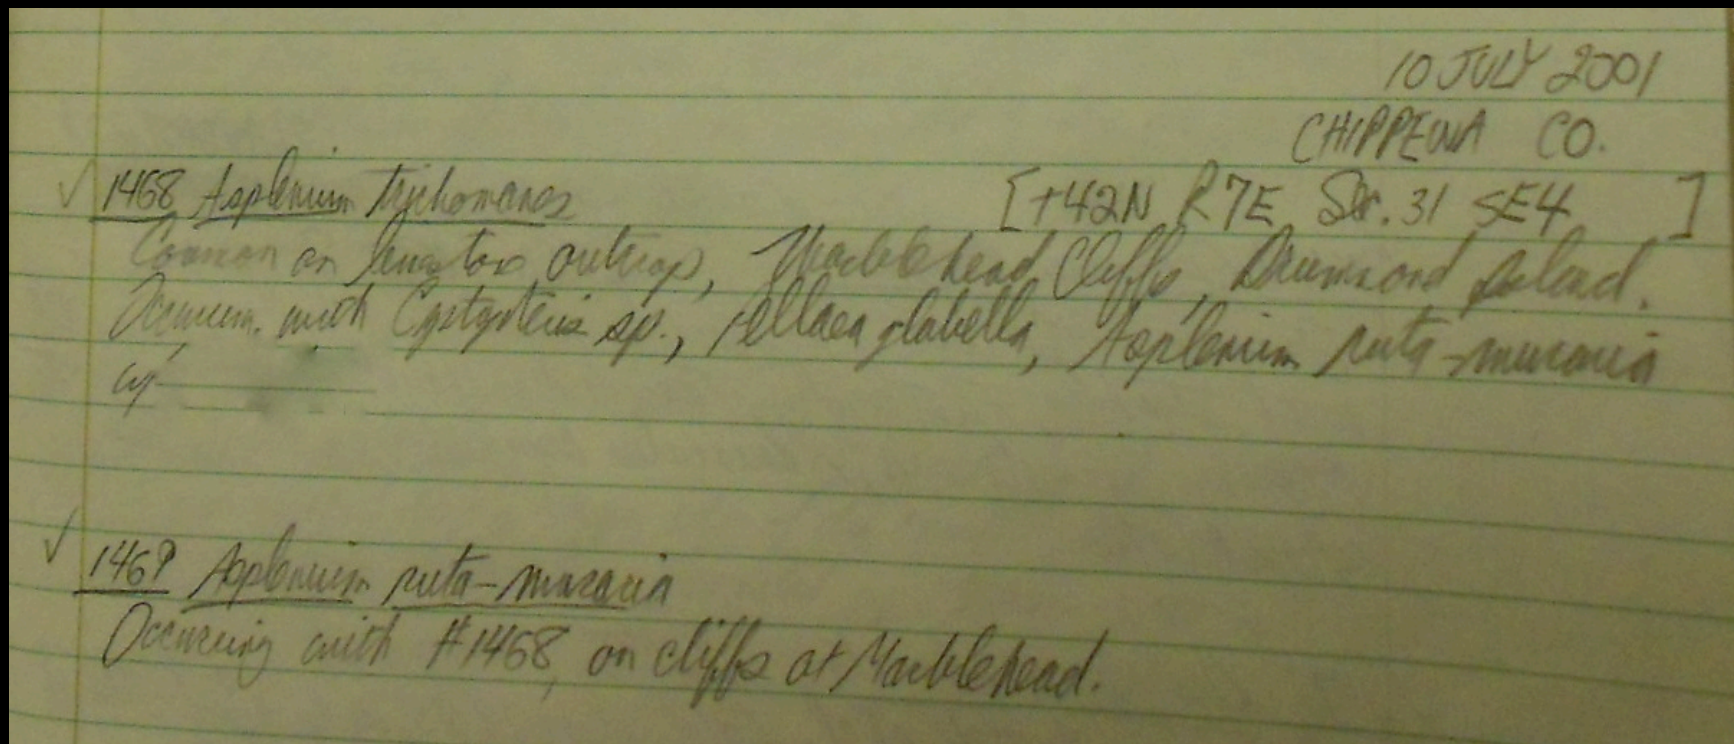 10 JULY 2001
CHIPPEWA CO.
✓ 1468 Asplenium trichomanes [T42N R7E Sec. 31 SE4 ]
Common on limestone outcrop, Marblehead Cliffs, Drummond Island.
with Cystopteris sp., Pellaea glabella, Asplenium ruta-muraria
✓ 1469 Asplenium ruta-muraria
Occurring with #1468, on cliffs at Marblehead.